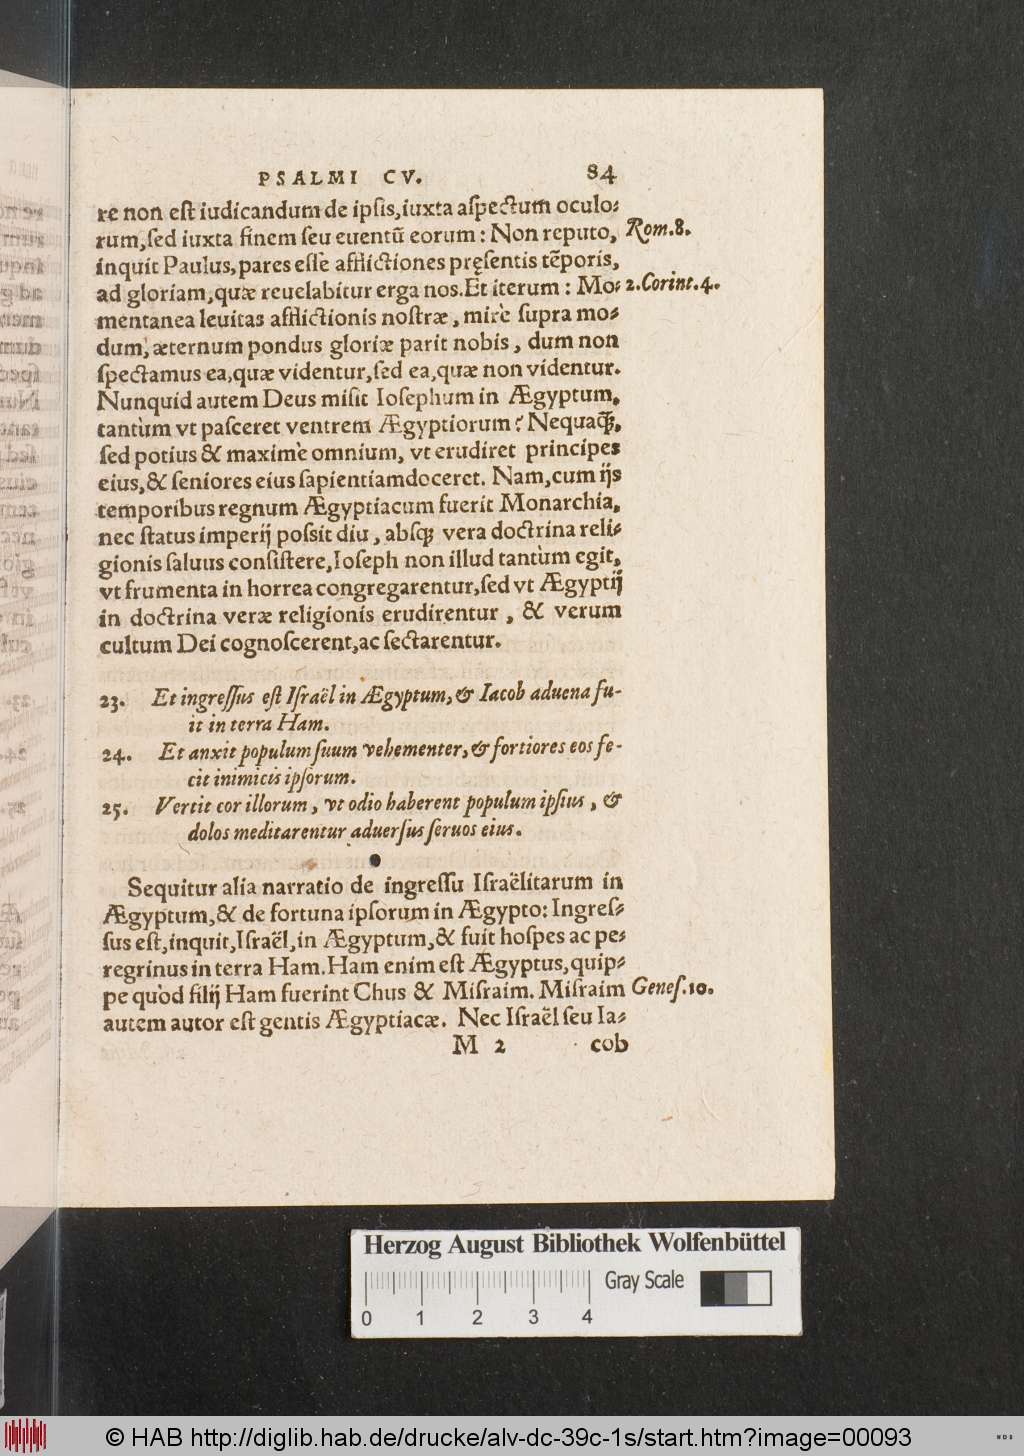 PSALMI CV. 84
re non eſt iudicandum de ipſis, iuxta aſpectum oculo⸗
rum, ſed iuxta finem ſeu euentū eorum: Non reputo, Rom. 8.
inquit Paulus, pares eſſe afflictiones pręſentis tēporis,
ad gloriam, quæ reuelabitur erga nos. Et iterum: Mo⸗ 2. Corint. 4.
mentanea leuitas afflictionis noſtræ, mirè ſupra mo⸗
dum, æternum pondus gloriæ parit nobis, dum non
ſpectamus ea, quæ videntur, ſed ea, quæ non videntur.
Nunquid autem Deus miſit Ioſephum in Ægyptum,
tantùm vt paſceret ventrem Ægyptiorum? Nequaꝗ̃,
ſed potius & maximè omnium, vt erudiret principes
eius, & ſeniores eius ſapientiamdoceret. Nam, cum ijs
temporibus regnum Ægyptiacum fuerit Monarchia,
nec ſtatus imperij poſsit diu, abſq; vera doctrina reli⸗
gionis ſaluus conſiſtere, Ioſeph non illud tantùm egit,
vt frumenta in horrea congregarentur, ſed vt Ægyptij
in doctrina veræ religionis erudirentur, & verum
cultum Dei cognoſcerent, ac ſectarentur.
23. Et ingreſſus eſt Iſraël in Ægyptum, & Iacob aduena fu-
it in terra Ham.
24. Et anxit populum ſuum vehementer, & fortiores eos fe-
cit inimicis ipſorum.
25. Vertit cor illorum, vt odio haberent populum ipſius, &
dolos meditarentur aduerſus ſeruos eius.
Sequitur alia narratio de ingreſſu Iſraëlitarum in
Ægyptum, & de fortuna ipſorum in Ægypto: Ingreſ⸗
ſus eſt, inquit, Iſraël, in Ægyptum, & fuit hoſpes ac pe⸗
regrinus in terra Ham. Ham enim eſt Ægyptus, quip⸗
pe quòd filij Ham fuerint Chus & Miſraim. Miſraim Geneſ. 10.
autem autor eſt gentis Ægyptiacæ. Nec Iſraël ſeu Ia⸗
M 2 cob
Herzog August Bibliothek Wolfenbüttel
Gray Scale
0 1 2 3 4
© HAB http://diglib.hab.de/drucke/alv-dc-39c-1s/start.htm?image=00093